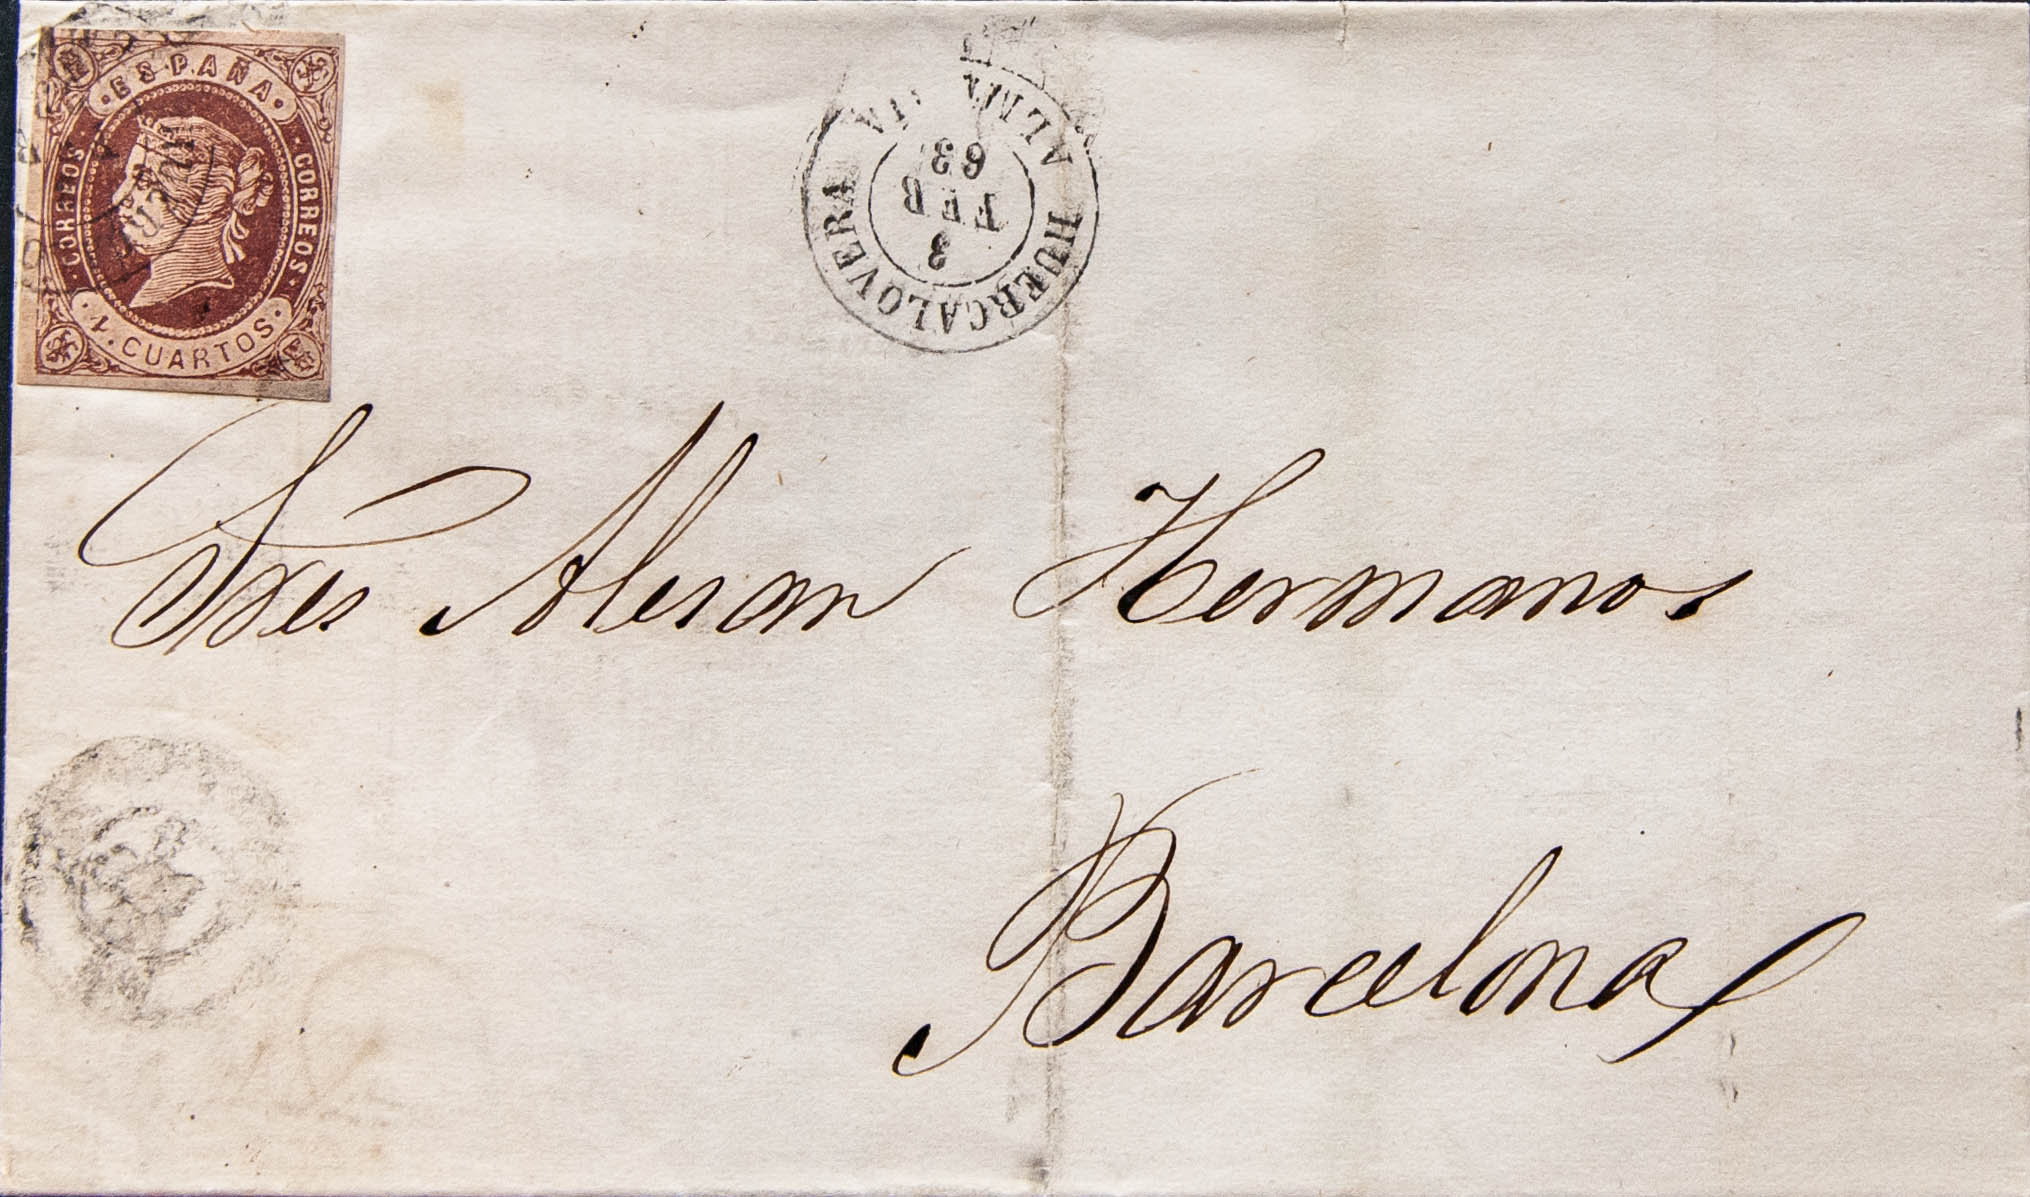 ESPAÑA
CORREOS
CORREOS
4 CUARTOS
HUERCALOVERA
3
FEB
63
Sres Alesan Hermanos
Barcelona